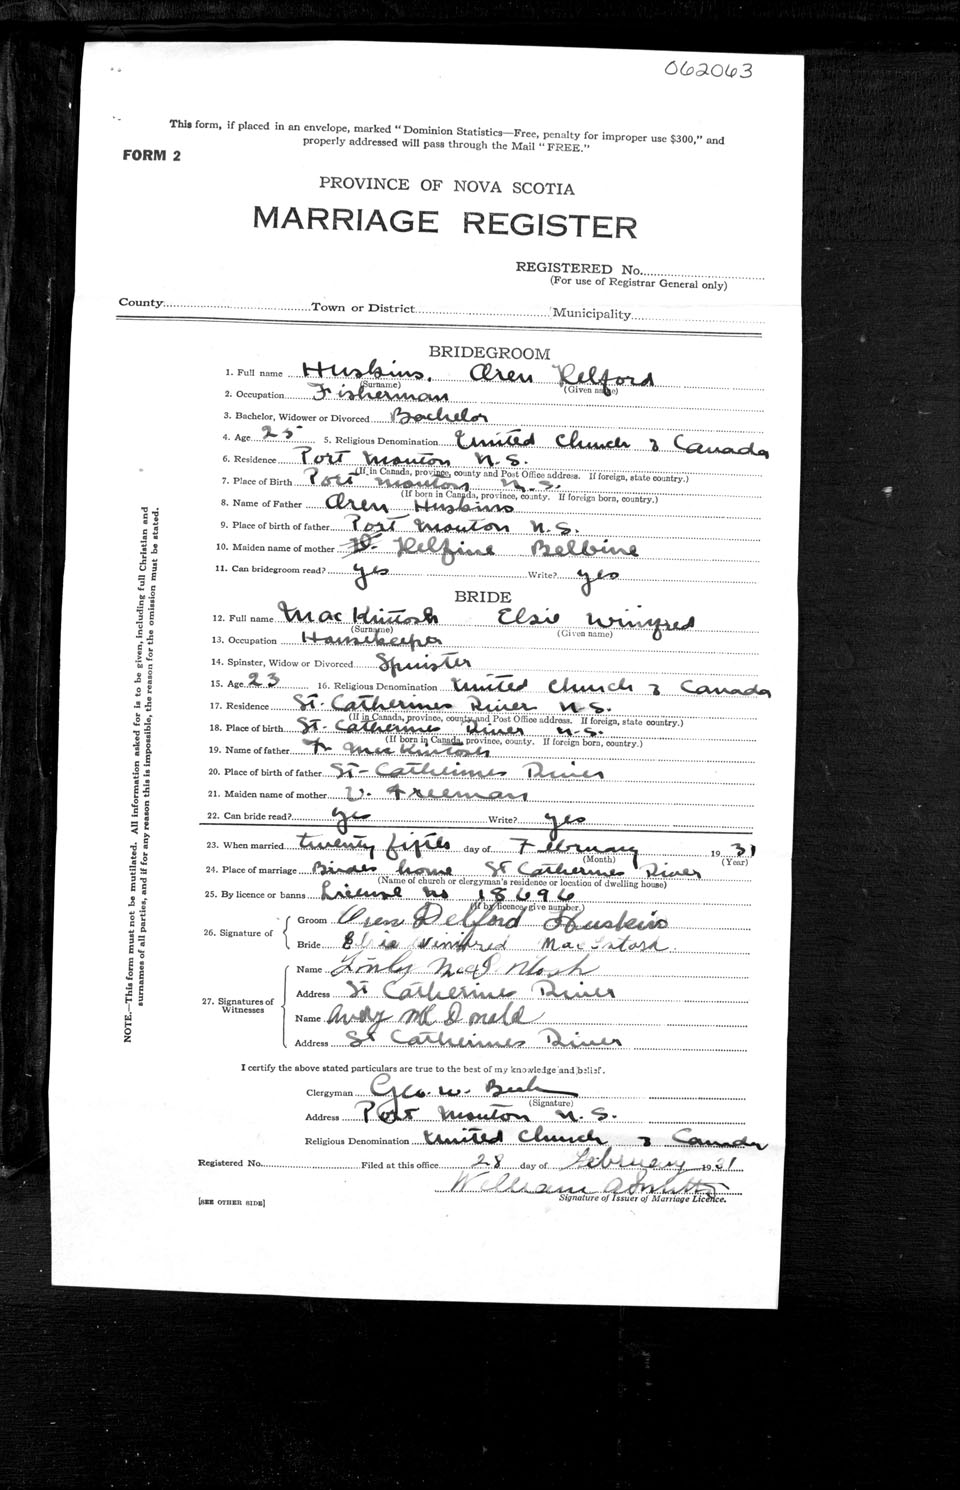 062063
This form, if placed in an envelope, marked "Dominion Statistics—Free, penalty for improper use $300," and
properly addressed will pass through the Mail "FREE."
FORM 2
PROVINCE OF NOVA SCOTIA
MARRIAGE REGISTER
REGISTERED No.
(For use of Registrar General only)
County Town or District Municipality
BRIDEGROOM
1. Full name Huskins, Oren Delford
(Surname) (Given name)
2. Occupation Fisherman
3. Bachelor, Widower or Divorced Bachelor
4. Age 25 5. Religious Denomination United Church of Canada
6. Residence Port Mouton N.S.
(If in Canada, province, county and Post Office address. If foreign, state country.)
7. Place of Birth Port Mouton N.S.
(If born in Canada, province, county. If foreign born, country.)
8. Name of Father Oren Huskins
9. Place of birth of father Port Mouton N.S.
10. Maiden name of mother Delfine
11. Can bridegroom read? yes Write? yes
BRIDE
12. Full name MacKintosh Elsie Winifred
(Surname) (Given name)
13. Occupation Housekeeper
14. Spinster, Widow or Divorced Spinster
15. Age 23 16. Religious Denomination United Church of Canada
17. Residence St. Catherines River N.S.
(If in Canada, province, county and Post Office address. If foreign, state country.)
18. Place of birth St. Catherines River N.S.
(If born in Canada, province, county. If foreign born, country.)
19. Name of father MacKintosh
20. Place of birth of father St-Catherines River
21. Maiden name of mother V. Freeman
22. Can bride read? yes Write? yes
23. When married twenty fifth day of February 1931
(Month) (Year)
24. Place of marriage Brides home St Catherines River
(Name of church or clergyman's residence or location of dwelling house)
25. By licence or banns License no 18696
(If by licence, give number.)
26. Signature of
Groom Oren Delford Huskins
Bride Elsie Winifred MacIntosh
27. Signatures of Witnesses
Name
Address St Catherines River
Name Andy McDonald
Address St Catherines River
I certify the above stated particulars are true to the best of my knowledge and belief.
Clergyman Geo. W.
(Signature)
Address Port Mouton N.S.
Religious Denomination United Church of Canada
Registered No. Filed at this office 28 day of February 1931
William
Signature of Issuer of Marriage Licence.
[SEE OTHER SIDE]
NOTE.—This form must not be mutilated. All information asked for is to be given, including full Christian and
surnames of all parties, and if for any reason this is impossible, the reason for the omission must be stated.